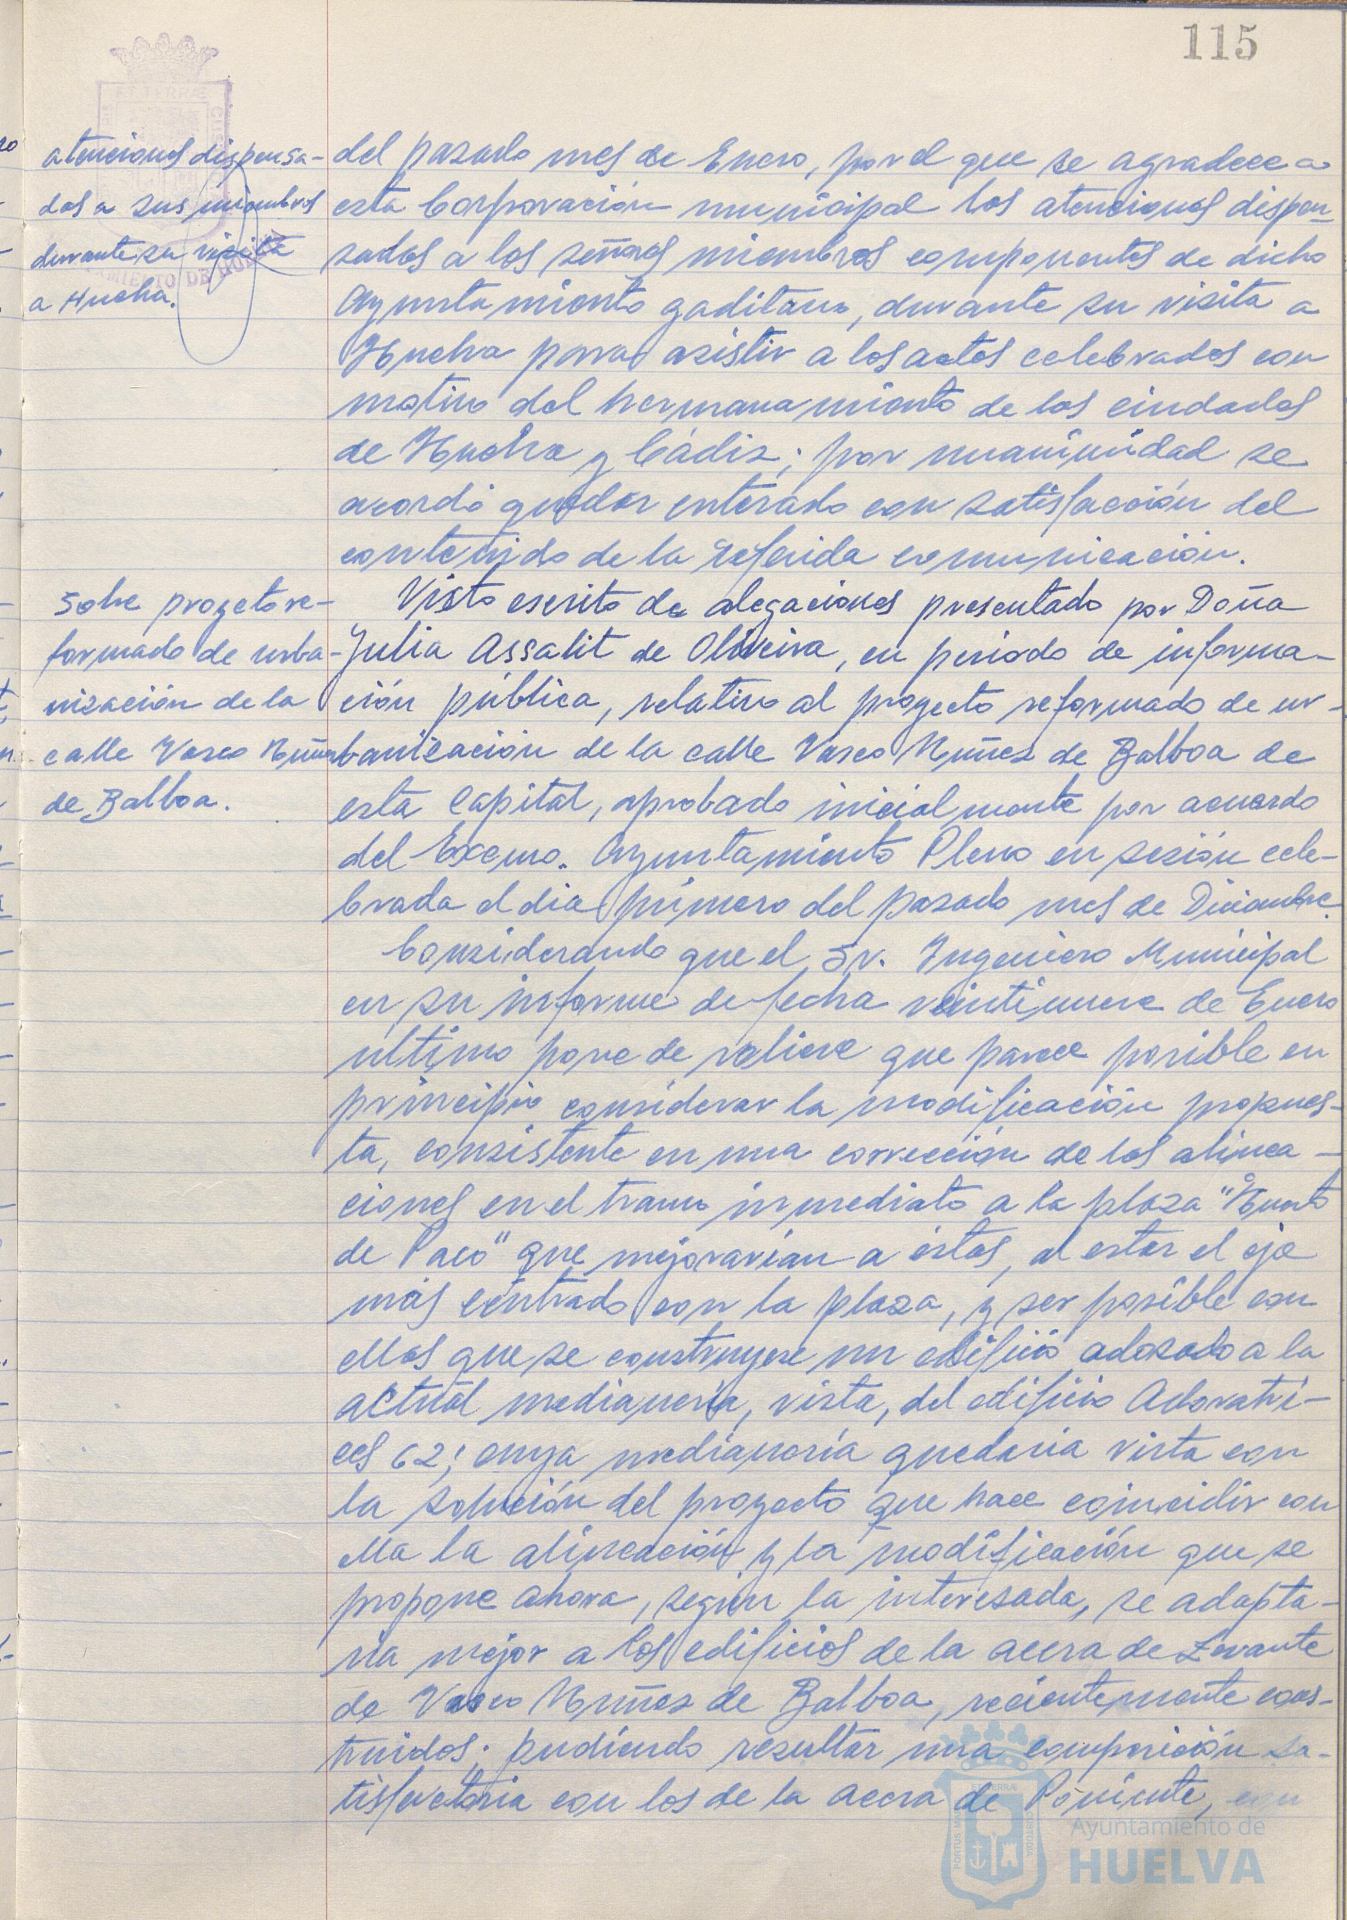 115
atenciones dispensa-
das a sus miembros
durante su visita
a Huelva.
del pasado mes de Enero, por el que se agradece a
esta Corporación municipal las atenciones dispen-
sadas a los señores miembros componentes de dicho
Ayuntamiento gaditano, durante su visita a
Huelva para asistir a los actos celebrados con
motivo del hermanamiento de las ciudades
de Huelva y Cádiz; por unanimidad se
acordó quedar enterado con satisfacción del
contenido de la referida comunicación.
Sobre proyecto re-
formado de urba-
nización de la
calle Vasco Núñez
de Balboa.
Visto escrito de alegaciones presentado por Doña
Julia Assalit de Oliveira, en periodo de informa-
ción pública, relativo al proyecto reformado de ur-
banización de la calle Vasco Núñez de Balboa de
esta Capital, aprobado inicialmente por acuerdo
del Excmo. Ayuntamiento Pleno en sesión cele-
brada el dia primero del pasado mes de Diciembre.
Considerando que el Sr. Ingeniero Municipal
en su informe de fecha veintinueve de Enero
ultimo pone de relieve que parece posible en
principio considerar la modificación propues-
ta, consistente en una corrección de las alinea-
ciones en el tramo inmediato a la plaza "Huerto
de Paco" que mejorarian a éstas, al estar el eje
más centrado con la plaza, y ser posible con
ellas que se construyese un edificio adosado a la
actual medianeria, vista, del edificio Adoratri-
ces 62; cuya medianería quedaria vista con
la solución del proyecto que hace coincidir con
ella la alineación y la modificación que se
propone ahora, según la interesada, se adapta-
ria mejor a los edificios de la acera de Levante
de Vasco Núñez de Balboa, recientemente cons-
truidos; pudiendo resultar una composición sa-
tisfactoria con los de la acera de Poniente, con
Ayuntamiento de
HUELVA